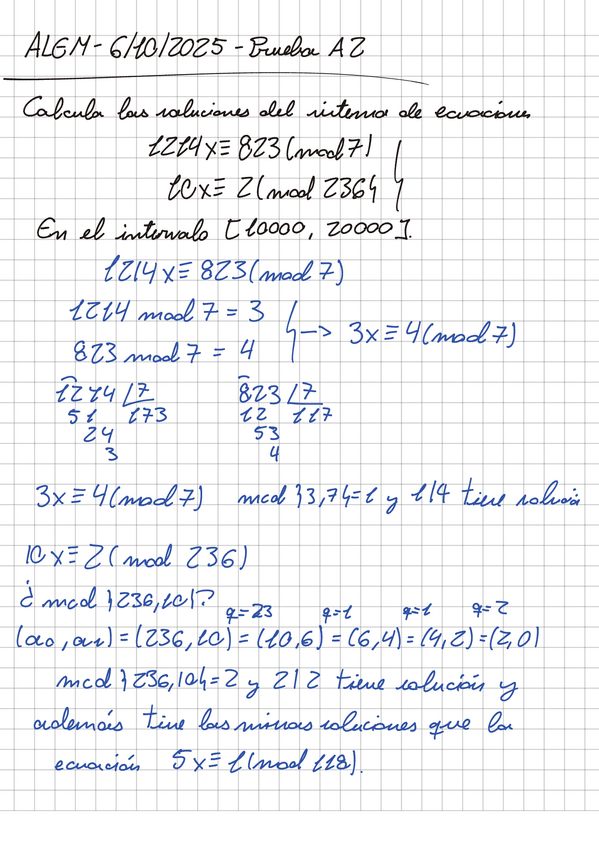 ALEM - 6/10/2025 - Prueba A2
Calcula las soluciones del sistema de ecuaciones
1214x ≡ 823 (mod 7)
10x ≡ 2 (mod 236) }
En el intervalo [10000, 20000].
1214x ≡ 823 (mod 7)
1214 mod 7 = 3
823 mod 7 = 4 } -> 3x ≡ 4 (mod 7)
1214 /7 823 /7
51 173 12 117
24 53
3 4
3x ≡ 4 (mod 7) mcd }3,7{ = 1 y 1/4 tiene solución
10x ≡ 2 (mod 236)
¿ mcd }236,10{ ?
q=23 q=1 q=1 q=2
(a0, a1) = (236, 10) = (10,6) = (6,4) = (4,2) = (2,0)
mcd }236,10{ = 2 y 2/2 tiene solución y
además tine las mismas soluciones que la
ecuación 5x ≡ 1 (mod 118).